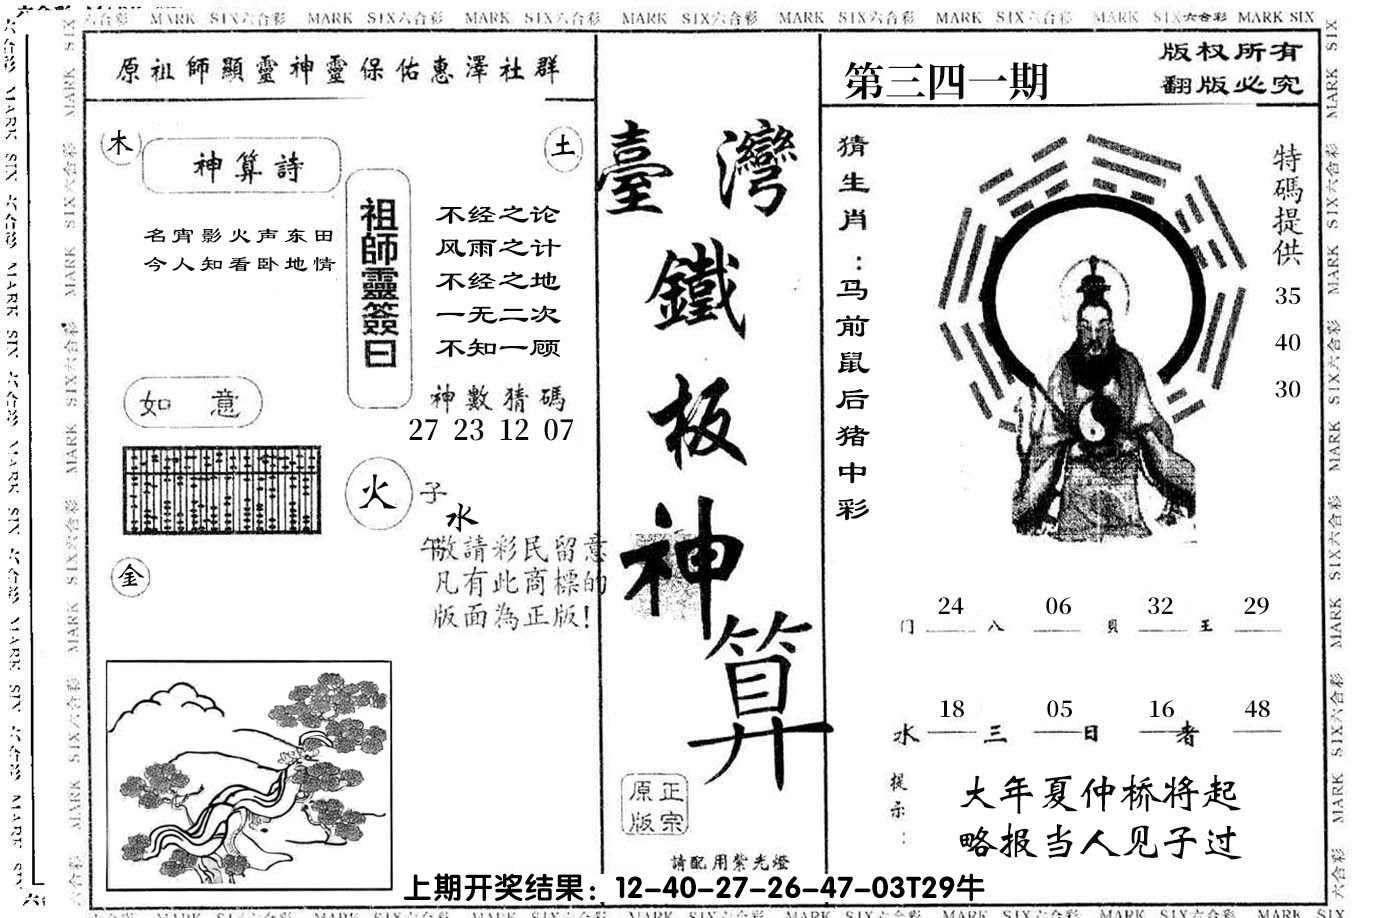 MARK SIX六合彩 MARK SIX六合彩 MARK SIX六合彩 MARK SIX六合彩 MARK SIX六合彩 MARK SIX六合彩 MARK SIX六合彩 MARK SIX
原祖師顯靈神靈保佑惠澤社群
木
神算詩
土
名宵影火声东田
今人知看卧地情
祖師靈簽曰
不经之论
风雨之计
不经之地
一无二次
不知一顾
神數猜碼
27 23 12 07
如意
火
子
水
午
金
敬請彩民留意
凡有此商標的
版面為正版!
臺灣
鐵
板
神
算
正宗
原版
請配用紫光燈
第三四一期
版权所有
翻版必究
猜生肖:马前鼠后猪中彩
特碼提供
35
40
30
24 06 32 29
门 八 貝 王
18 05 16 48
水 三 日 者
提示:
大年夏仲桥将起
略报当人见子过
上期开奖结果：12-40-27-26-47-03T29牛